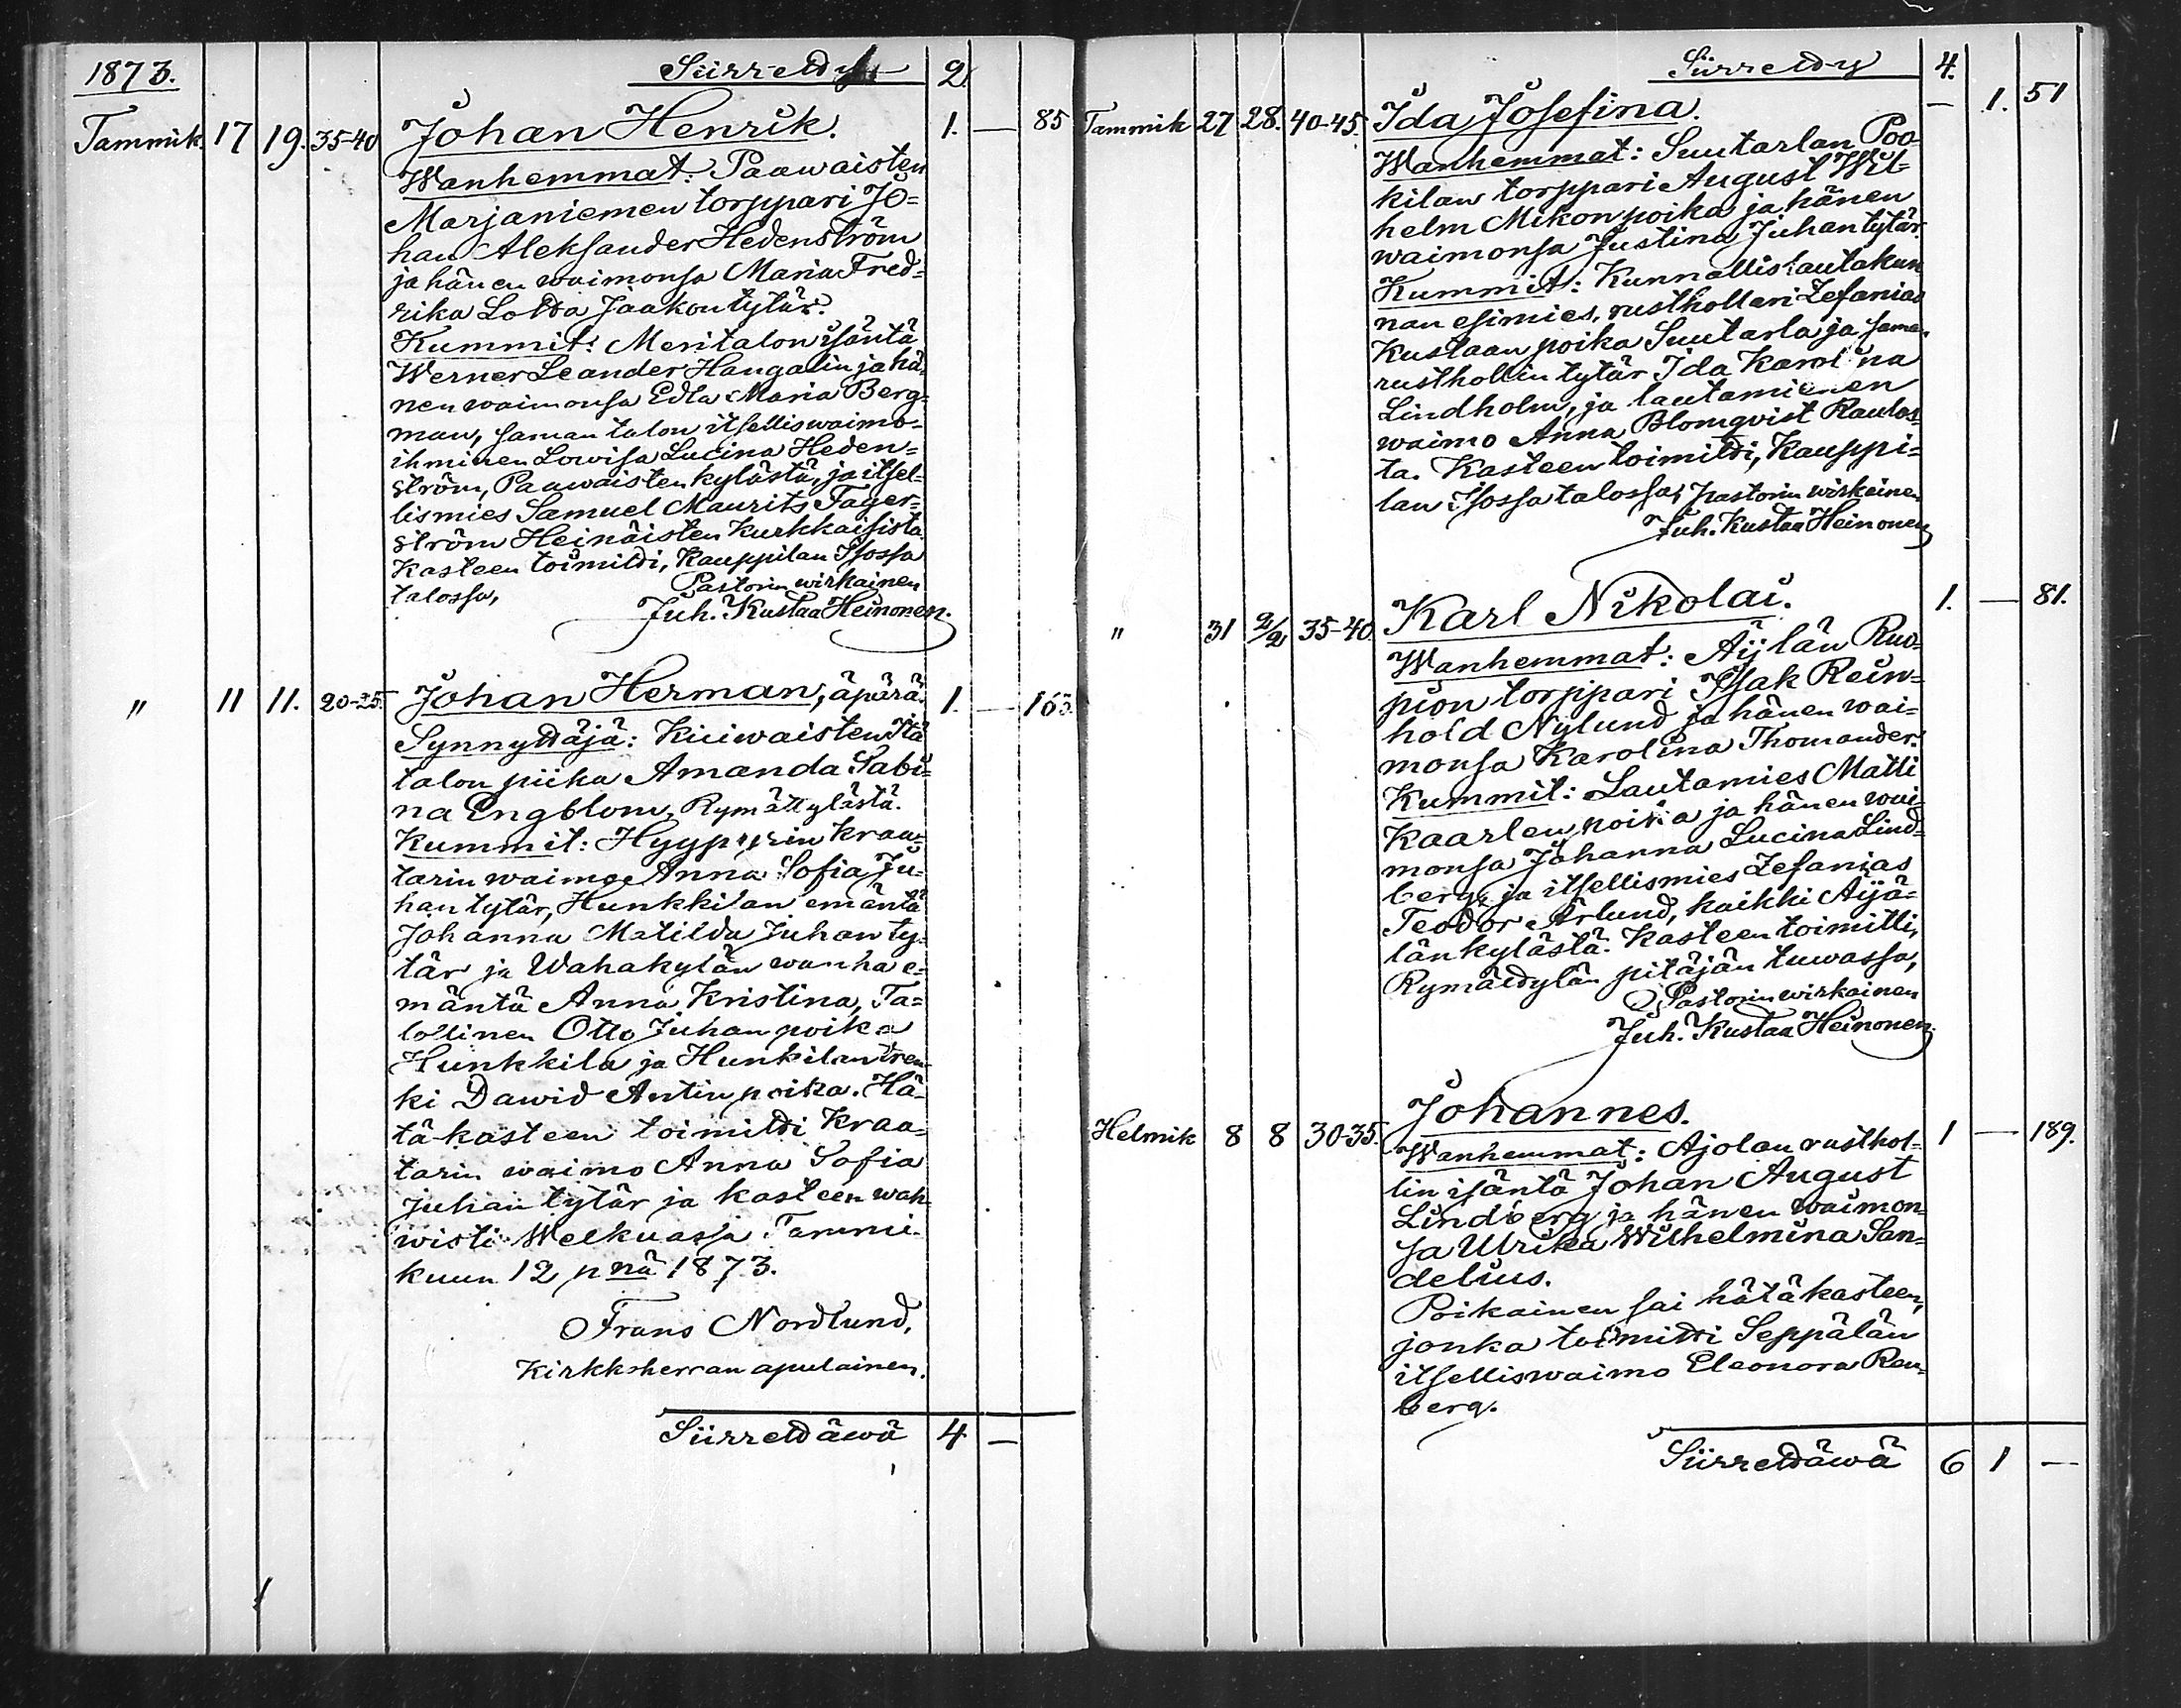 1873.
Siirretty 2
Tammik. 17 19. 35-40 Johan Henrik. 1. — 85
Wanhemmat: Paawaisten
Marjaniemen torppari Jo=
han Aleksander Hedenström
ja hänen waimonsa Maria Fred=
rika Lotta Jaakontytär.
Kummit: Meritalon isäntä
Werner Leander Hangalin ja hä-
nen waimonsa Edla Maria Berg=
man, saman talon itselliswaimo-
ihminen Lowisa Lucina Heden=
ström, Paawaisten kylästä, ja itsel=
lismies Samuel Maurits Fager=
ström Heinäisten Kurkkaisista
Kasteen toimitti, Kauppilan Isossa
talossa, Pastorin wirkainen
Juh. Kustaa Heinonen.
" 11 11. 20-25. Johan Herman, äpärä. 1. — 163.
Synnyttäjä: Kuiwaisten Itä
talon piika Amanda Sabi=
na Engblom, Rymättylästä.
Kummit: Hyyppyrin Kraa=
tarin waimo Anna Sofia Ju=
han tytär, Hunkkilan emäntä
Johanna Matilda Juhan ty=
tär ja Wahakylän wanha e=
mäntä Anna Kristina, Ta=
lollinen Otto Juhan poika
Hunkkila ja Hunkilan ren-
ki Dawid Antin poika. Hä-
tä-kasteen toimitti Kraa=
tarin waimo Anna Sofia
Juhan tytär ja kasteen wah-
wisti Welkuassa Tammi-
kuun 12 pnä 1873.
Frans Nordlund,
Kirkkoherran apulainen.
Siirrettäwä 4 —
Siirretty 4.
Tammik 27 28. 40-45. Ida Josefina. — 1. 51
Wanhemmat: Suutarlan Poo-
kilan torppari August Wil-
helm Mikonpoika ja hänen
waimonsa Justina Juhantytär.
Kummit: Kunnallislautakun
nan esimies, rusthollari Zefanias
Kustaan poika Suutarla ja saman
rusthollin tytär Ida Karolina
Lindholm, ja lautamiehen
waimo Anna Blomqvist Raulos-
ta. Kasteen toimitti, Kauppi=
lan Isossa talossa, pastorin wirkainen
Juh. Kustaa Heinonen
" 31 2/2 35-40. Karl Nikolai. 1. — 81.
Wanhemmat: Äijlän Ruo-
pion torppari Isak Rein=
hold Nylund ja hänen wai=
monsa Karolina Thomander.
Kummit: Lautamies Matti
Kaarlen poika ja hänen wai-
monsa Johanna Lucina Lind=
berg, ja itsellismies Zefanias
Teodor Arlund, kaikki Äijä=
län kylästä. Kasteen toimitti,
Rymättylän pitäjän tuwassa,
Pastorin wirkainen
Juh. Kustaa Heinonen.
Helmik 8 8 30-35. Johannes. 1 — 189.
Wanhemmat: Ajolan rusthol=
lin isäntä Johan August
Lindberg ja hänen waimon=
sa Ulrika Wilhelmina San=
delius.
Poikainen sai hätäkasteen,
jonka toimitti Seppälän
itselliswaimo Eleonora Ren=
berg.
Siirrettäwä 6 1 —